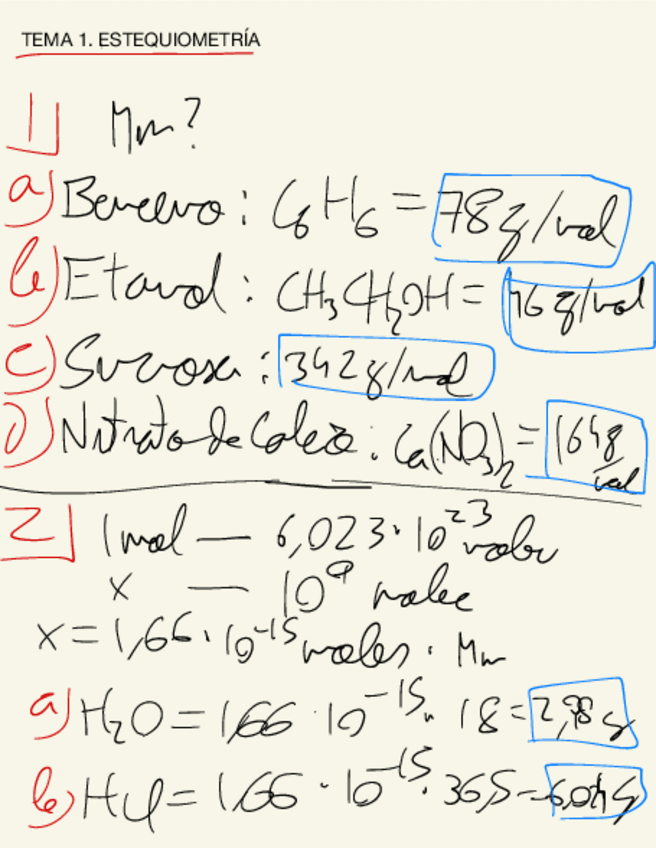 TEMA 1. ESTEQUIOMETRÍA
1] Mm?
a) Benceno: C6H6 = 78 g/mol
b) Etanol: CH3CH2OH = 46 g/mol
c) Sucrosa: 342 g/mol
d) Nitrato de Calcio: Ca(NO3)2 = 164 g/mol
2] 1 mol — 6,023·10^23 molec
x — 10^9 molec
x = 1,66·10^-15 moles · Mm
a) H2O = 1,66·10^-15 · 18 = 2,98 g
b) HCl = 1,66·10^-15 · 36,5 =